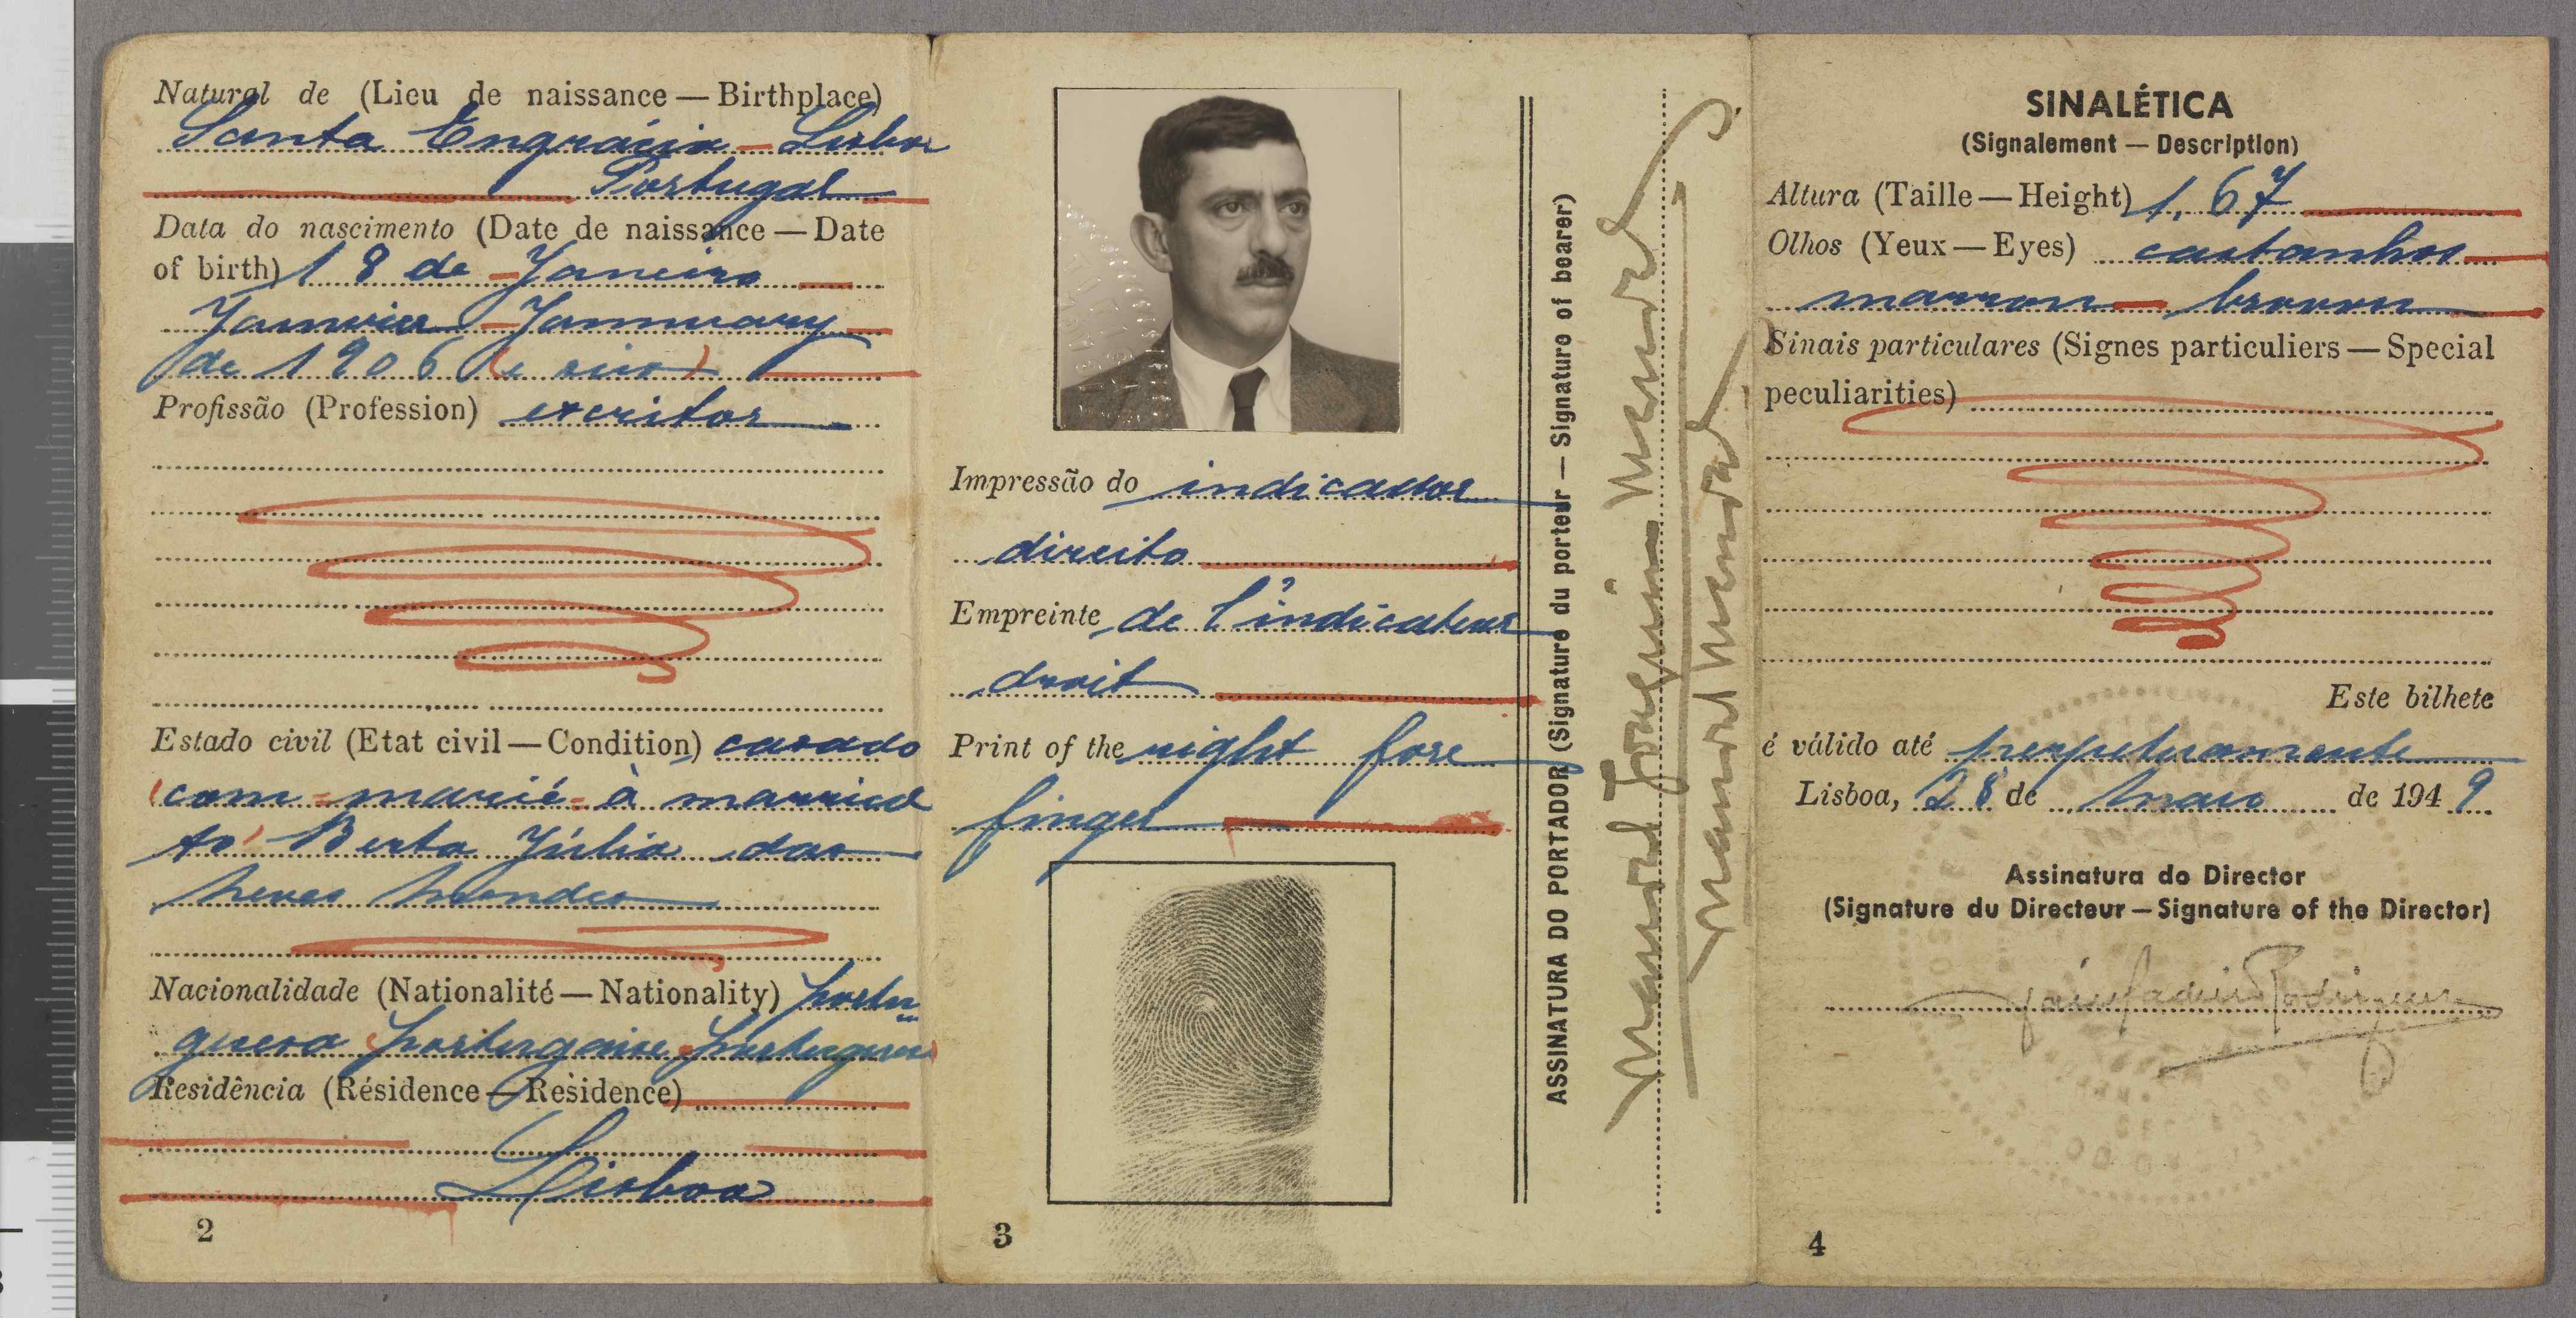 Natural de (Lieu de naissance — Birthplace)
Santa Engrácia – Lisboa
Portugal
Data do nascimento (Date de naissance — Date
of birth) 18 de – Janeiro
Janvier – Jannuary
de 1906 (e seis)
Profissão (Profession) escritor
Estado civil (Etat civil — Condition) casado
(com – marié – à married
to) Berta Júlia das
Neves Mendes
Nacionalidade (Nationalité — Nationality) portu
guesa portugaise portuguese
Residência (Résidence — Residence)
Lisboa
2
Impressão do indicador
direito
Empreinte de l'indicateur
droit
Print of the right fore
finger
3
ASSINATURA DO PORTADOR (Signature du porteur — Signature of bearer)
Manuel Joaquim Mendes
Manuel Mendes
SINALÉTICA
(Signalement — Description)
Altura (Taille — Height) 1,67
Olhos (Yeux — Eyes) castanhos
marron – brown
Sinais particulares (Signes particuliers — Special
peculiarities)
Este bilhete
é válido até perpetuamente
Lisboa, 28 de Maio de 1949
Assinatura do Director
(Signature du Directeur — Signature of the Director)
Rodrigues
4